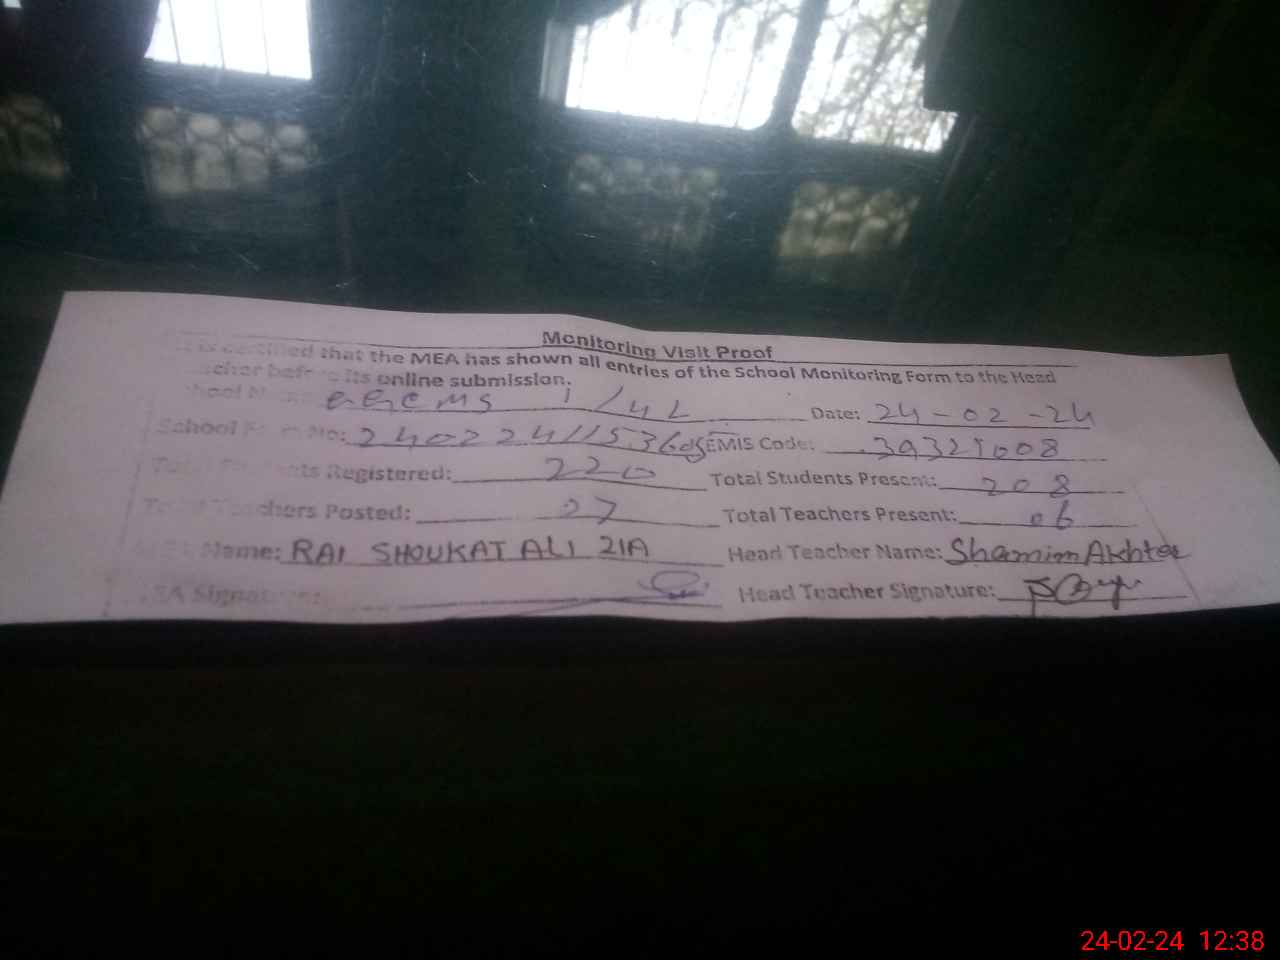 Monitoring Visit Proof
is certified that the MEA has shown all entries of the School Monitoring Form to the Head
before its online submission.
1/4L Date: 24-02-24
School No: EMIS Code: 39321008
Total Students Registered: 220 Total Students Present: 208
Total Teachers Posted: 07 Total Teachers Present: 06
Name: RAI SHOUKAT ALI ZIA Head Teacher Name: Shamim Akhter
Signature: Head Teacher Signature:
24-02-24 12:38